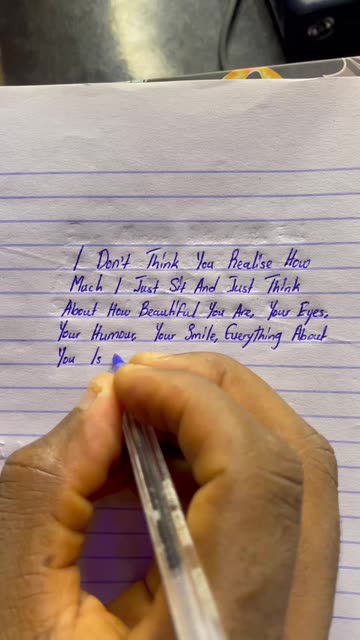 I Don't Think You Realise How
Much I Just Sit And Just Think
About How Beautiful You Are, Your Eyes,
Your Humour, Your Smile, Everything About
You Is